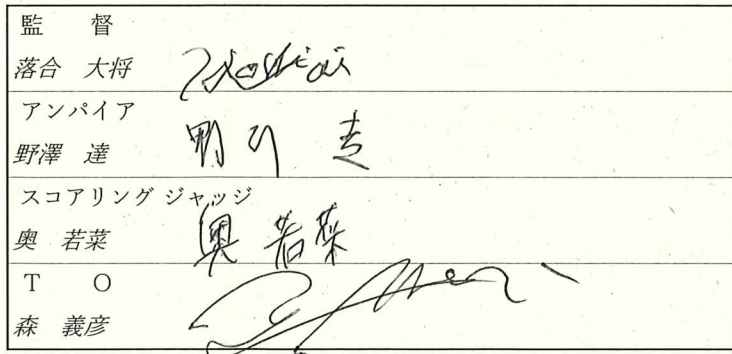 監 督
落合 大将
アンパイア
野澤 達
スコアリング ジャッジ
奥 若菜
奥 若菜
T O
森 義彦